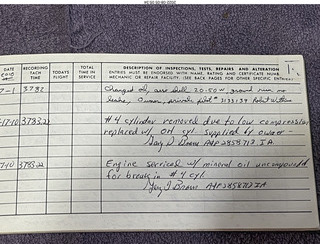 DATE
2010
RECORDING
TACH
TIME
TODAY'S
FLIGHT
TOTAL
TIME IN
SERVICE
DESCRIPTION OF INSPECTIONS, TESTS, REPAIRS AND ALTERATION
ENTRIES MUST BE ENDORSED WITH NAME, RATING AND CERTIFICATE NUMB
MECHANIC OR REPAIR FACILITY. (SEE BACK PAGES FOR OTHER SPECIFIC ENTRIES
7-1 3782 Changed oil, 20-50W, ground run no
leaks, Owner, private pilot 3133139
17-10 3783.22 #4 cylinder removed due to low compression
replaced w/ OH cyl. supplied by owner -
A&P 2858713 IA
7-10 3783.22 Engine serviced w/ mineral oil uncompounded
for break in #4 cyl.
A&P 2858713 IA